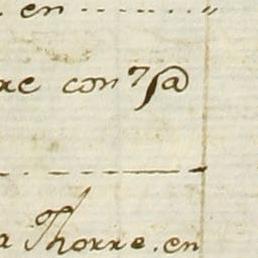 en ........ "
re con
a Thorre. en